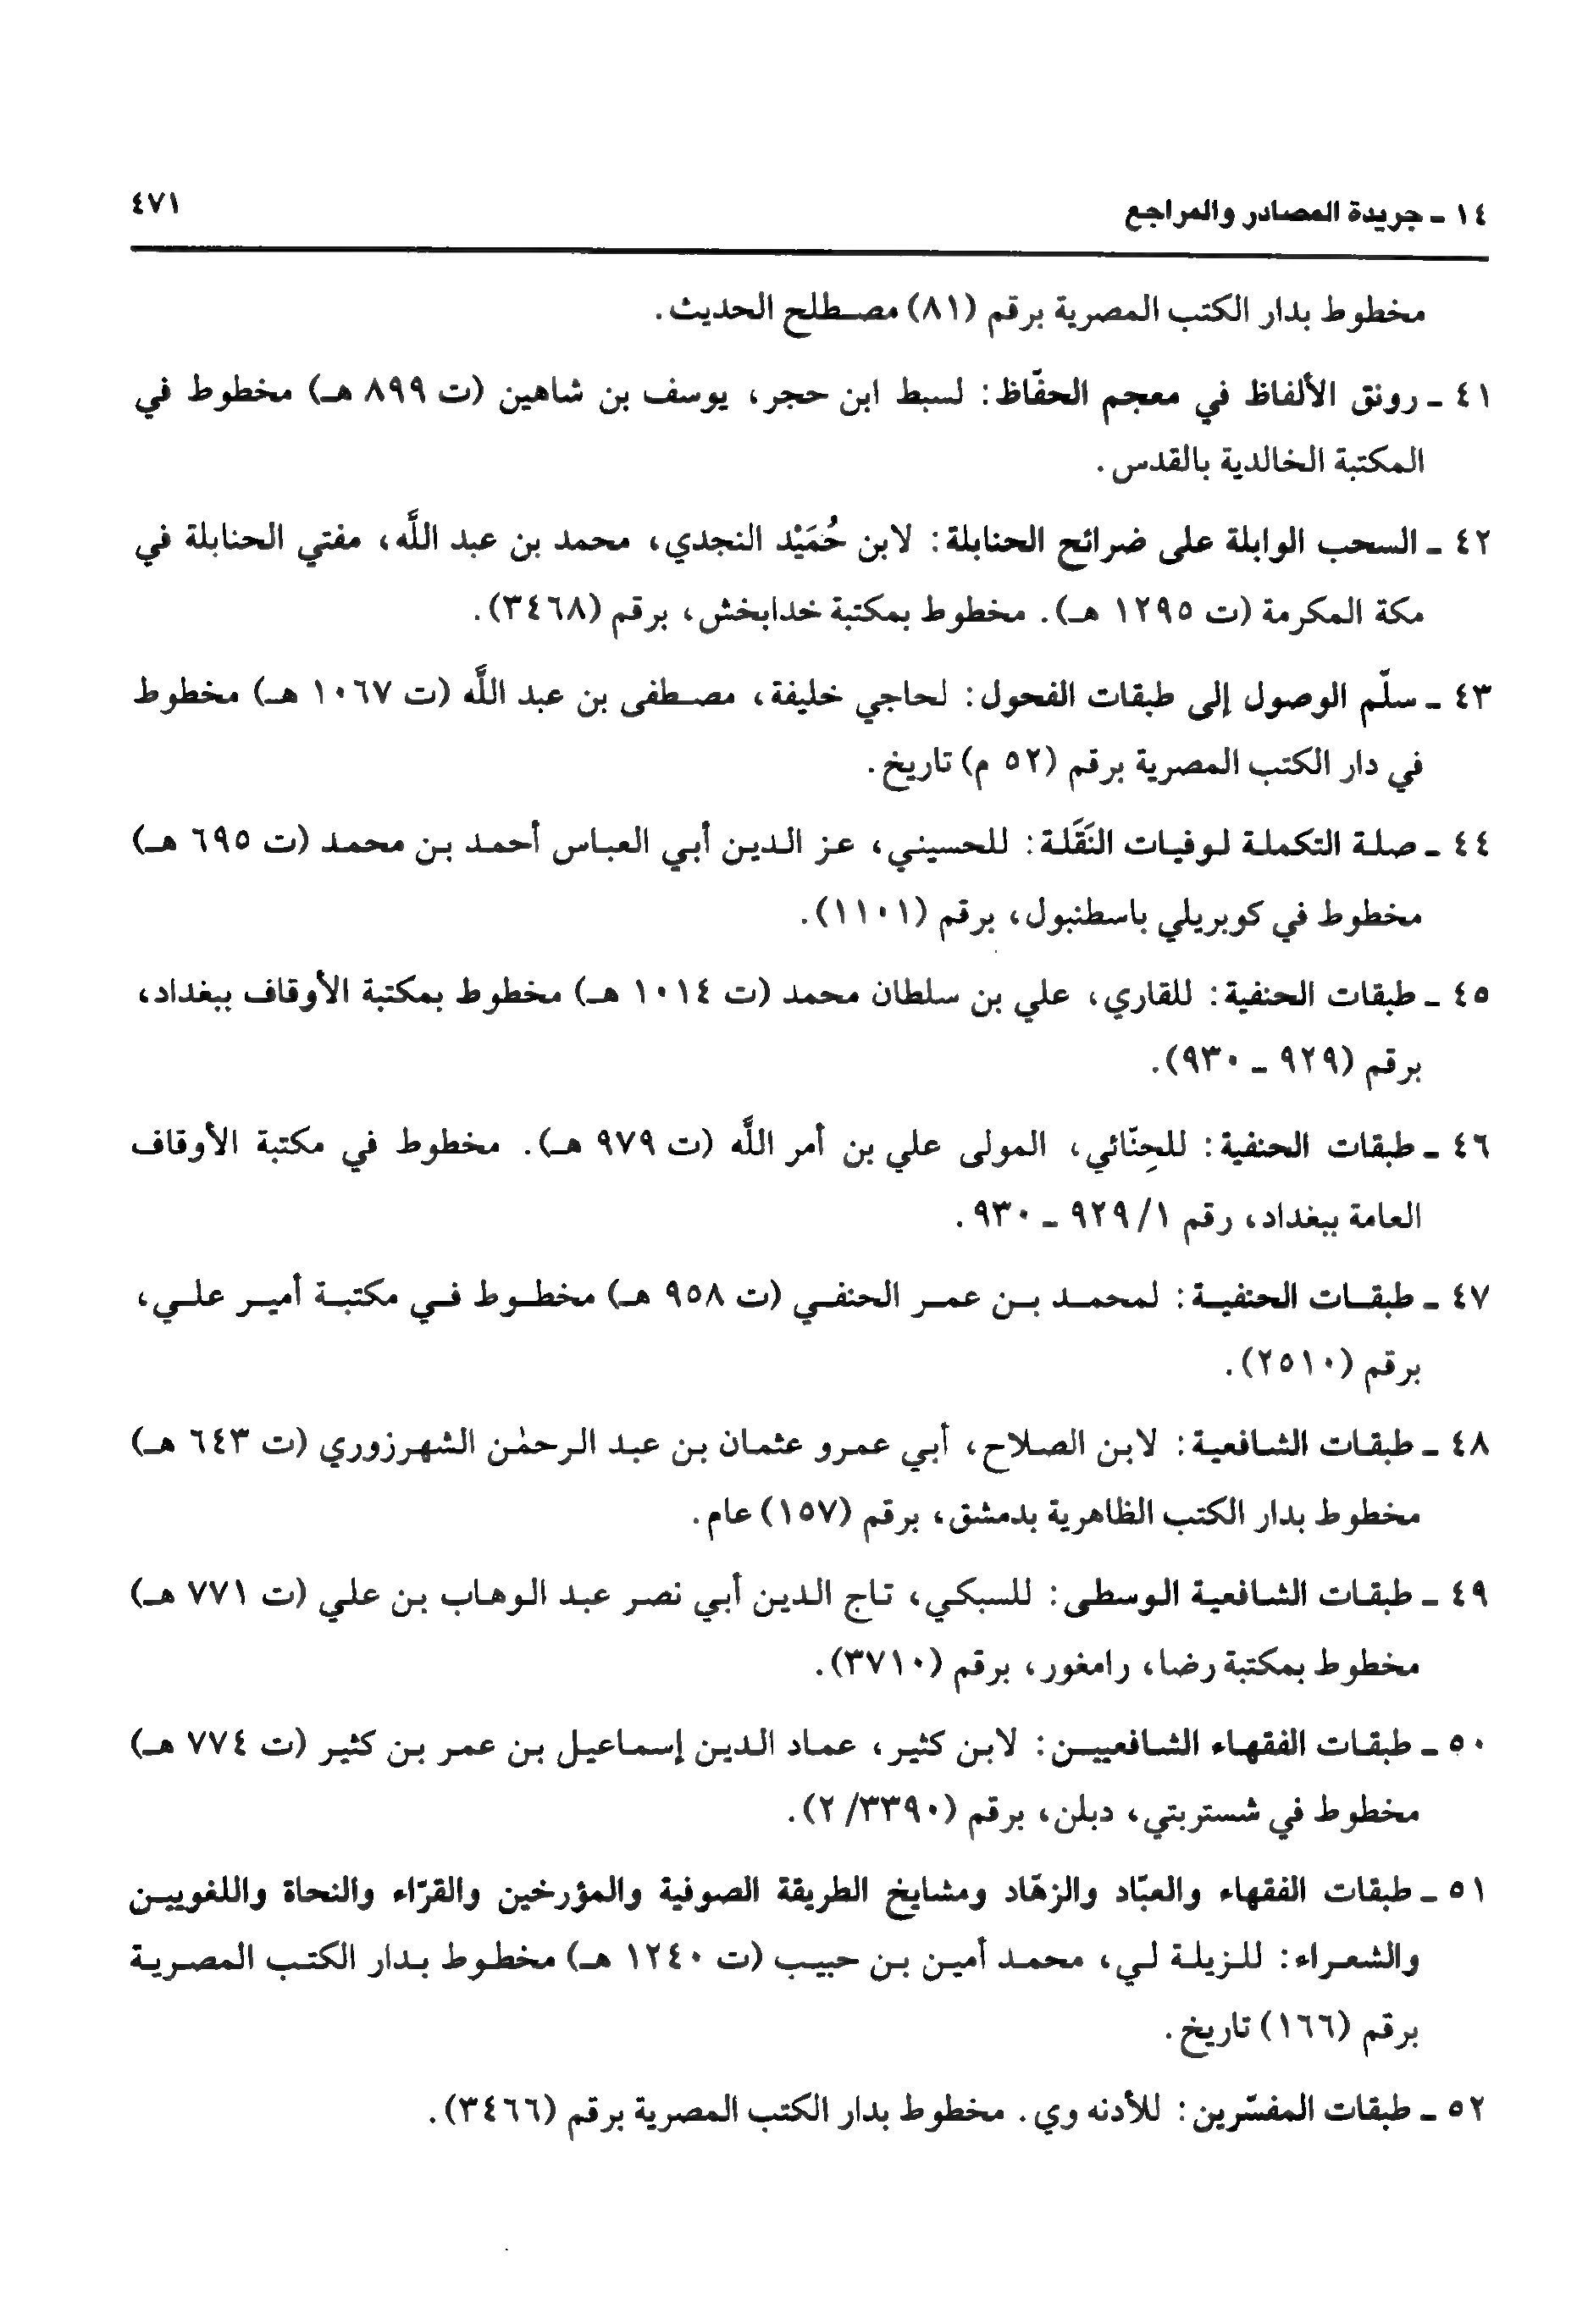 ١٤ ـ جريدة المصادر والمراجع ٤٧١
مخطوط بدار الكتب المصرية برقم (٨١) مصطلح الحديث.
٤١ ـ رونق الألفاظ في معجم الحفّاظ: لسبط ابن حجر، يوسف بن شاهين (ت ٨٩٩ هـ) مخطوط في
المكتبة الخالدية بالقدس.
٤٢ ـ السحب الوابلة على ضرائح الحنابلة: لابن حُمَيْد النجدي، محمد بن عبد اللَّه، مفتي الحنابلة في
مكة المكرمة (ت ١٢٩٥ هـ). مخطوط بمكتبة خدابخش، برقم (٣٤٦٨).
٤٣ ـ سلّم الوصول إلى طبقات الفحول: لحاجي خليفة، مصطفى بن عبد اللَّه (ت ١٠٦٧ هـ) مخطوط
في دار الكتب المصرية برقم (٥٢ م) تاريخ.
٤٤ ـ صلة التكملة لوفيات النَقَلة: للحسيني، عز الدين أبي العباس أحمد بن محمد (ت ٦٩٥ هـ)
مخطوط في كوبريلي باسطنبول، برقم (١١٠١).
٤٥ ـ طبقات الحنفية: للقاري، علي بن سلطان محمد (ت ١٠١٤ هـ) مخطوط بمكتبة الأوقاف ببغداد،
برقم (٩٢٩ ـ ٩٣٠).
٤٦ ـ طبقات الحنفية: للحِنّائي، المولى علي بن أمر اللَّه (ت ٩٧٩ هـ). مخطوط في مكتبة الأوقاف
العامة ببغداد، رقم ٩٢٩/١ ـ ٩٣٠.
٤٧ ـ طبقات الحنفية: لمحمد بن عمر الحنفي (ت ٩٥٨ هـ) مخطوط في مكتبة أمير علي،
برقم (٢٥١٠).
٤٨ ـ طبقات الشافعية: لابن الصلاح، أبي عمرو عثمان بن عبد الرحمٰن الشهرزوري (ت ٦٤٣ هـ)
مخطوط بدار الكتب الظاهرية بدمشق، برقم (١٥٧) عام.
٤٩ ـ طبقات الشافعية الوسطى: للسبكي، تاج الدين أبي نصر عبد الوهاب بن علي (ت ٧٧١ هـ)
مخطوط بمكتبة رضا، رامغور، برقم (٣٧١٠).
٥٠ ـ طبقات الفقهاء الشافعيين: لابن كثير، عماد الدين إسماعيل بن عمر بن كثير (ت ٧٧٤ هـ)
مخطوط في شستربتي، دبلن، برقم (٣٣٩٠/ ٢).
٥١ ـ طبقات الفقهاء والعبّاد والزهّاد ومشايخ الطريقة الصوفية والمؤرخين والقرّاء والنحاة واللغويين
والشعراء: للزيلة لي، محمد أمين بن حبيب (ت ١٢٤٠ هـ) مخطوط بدار الكتب المصرية
برقم (١٦٦) تاريخ.
٥٢ ـ طبقات المفسّرين: للأدنه وي. مخطوط بدار الكتب المصرية برقم (٣٤٦٦).